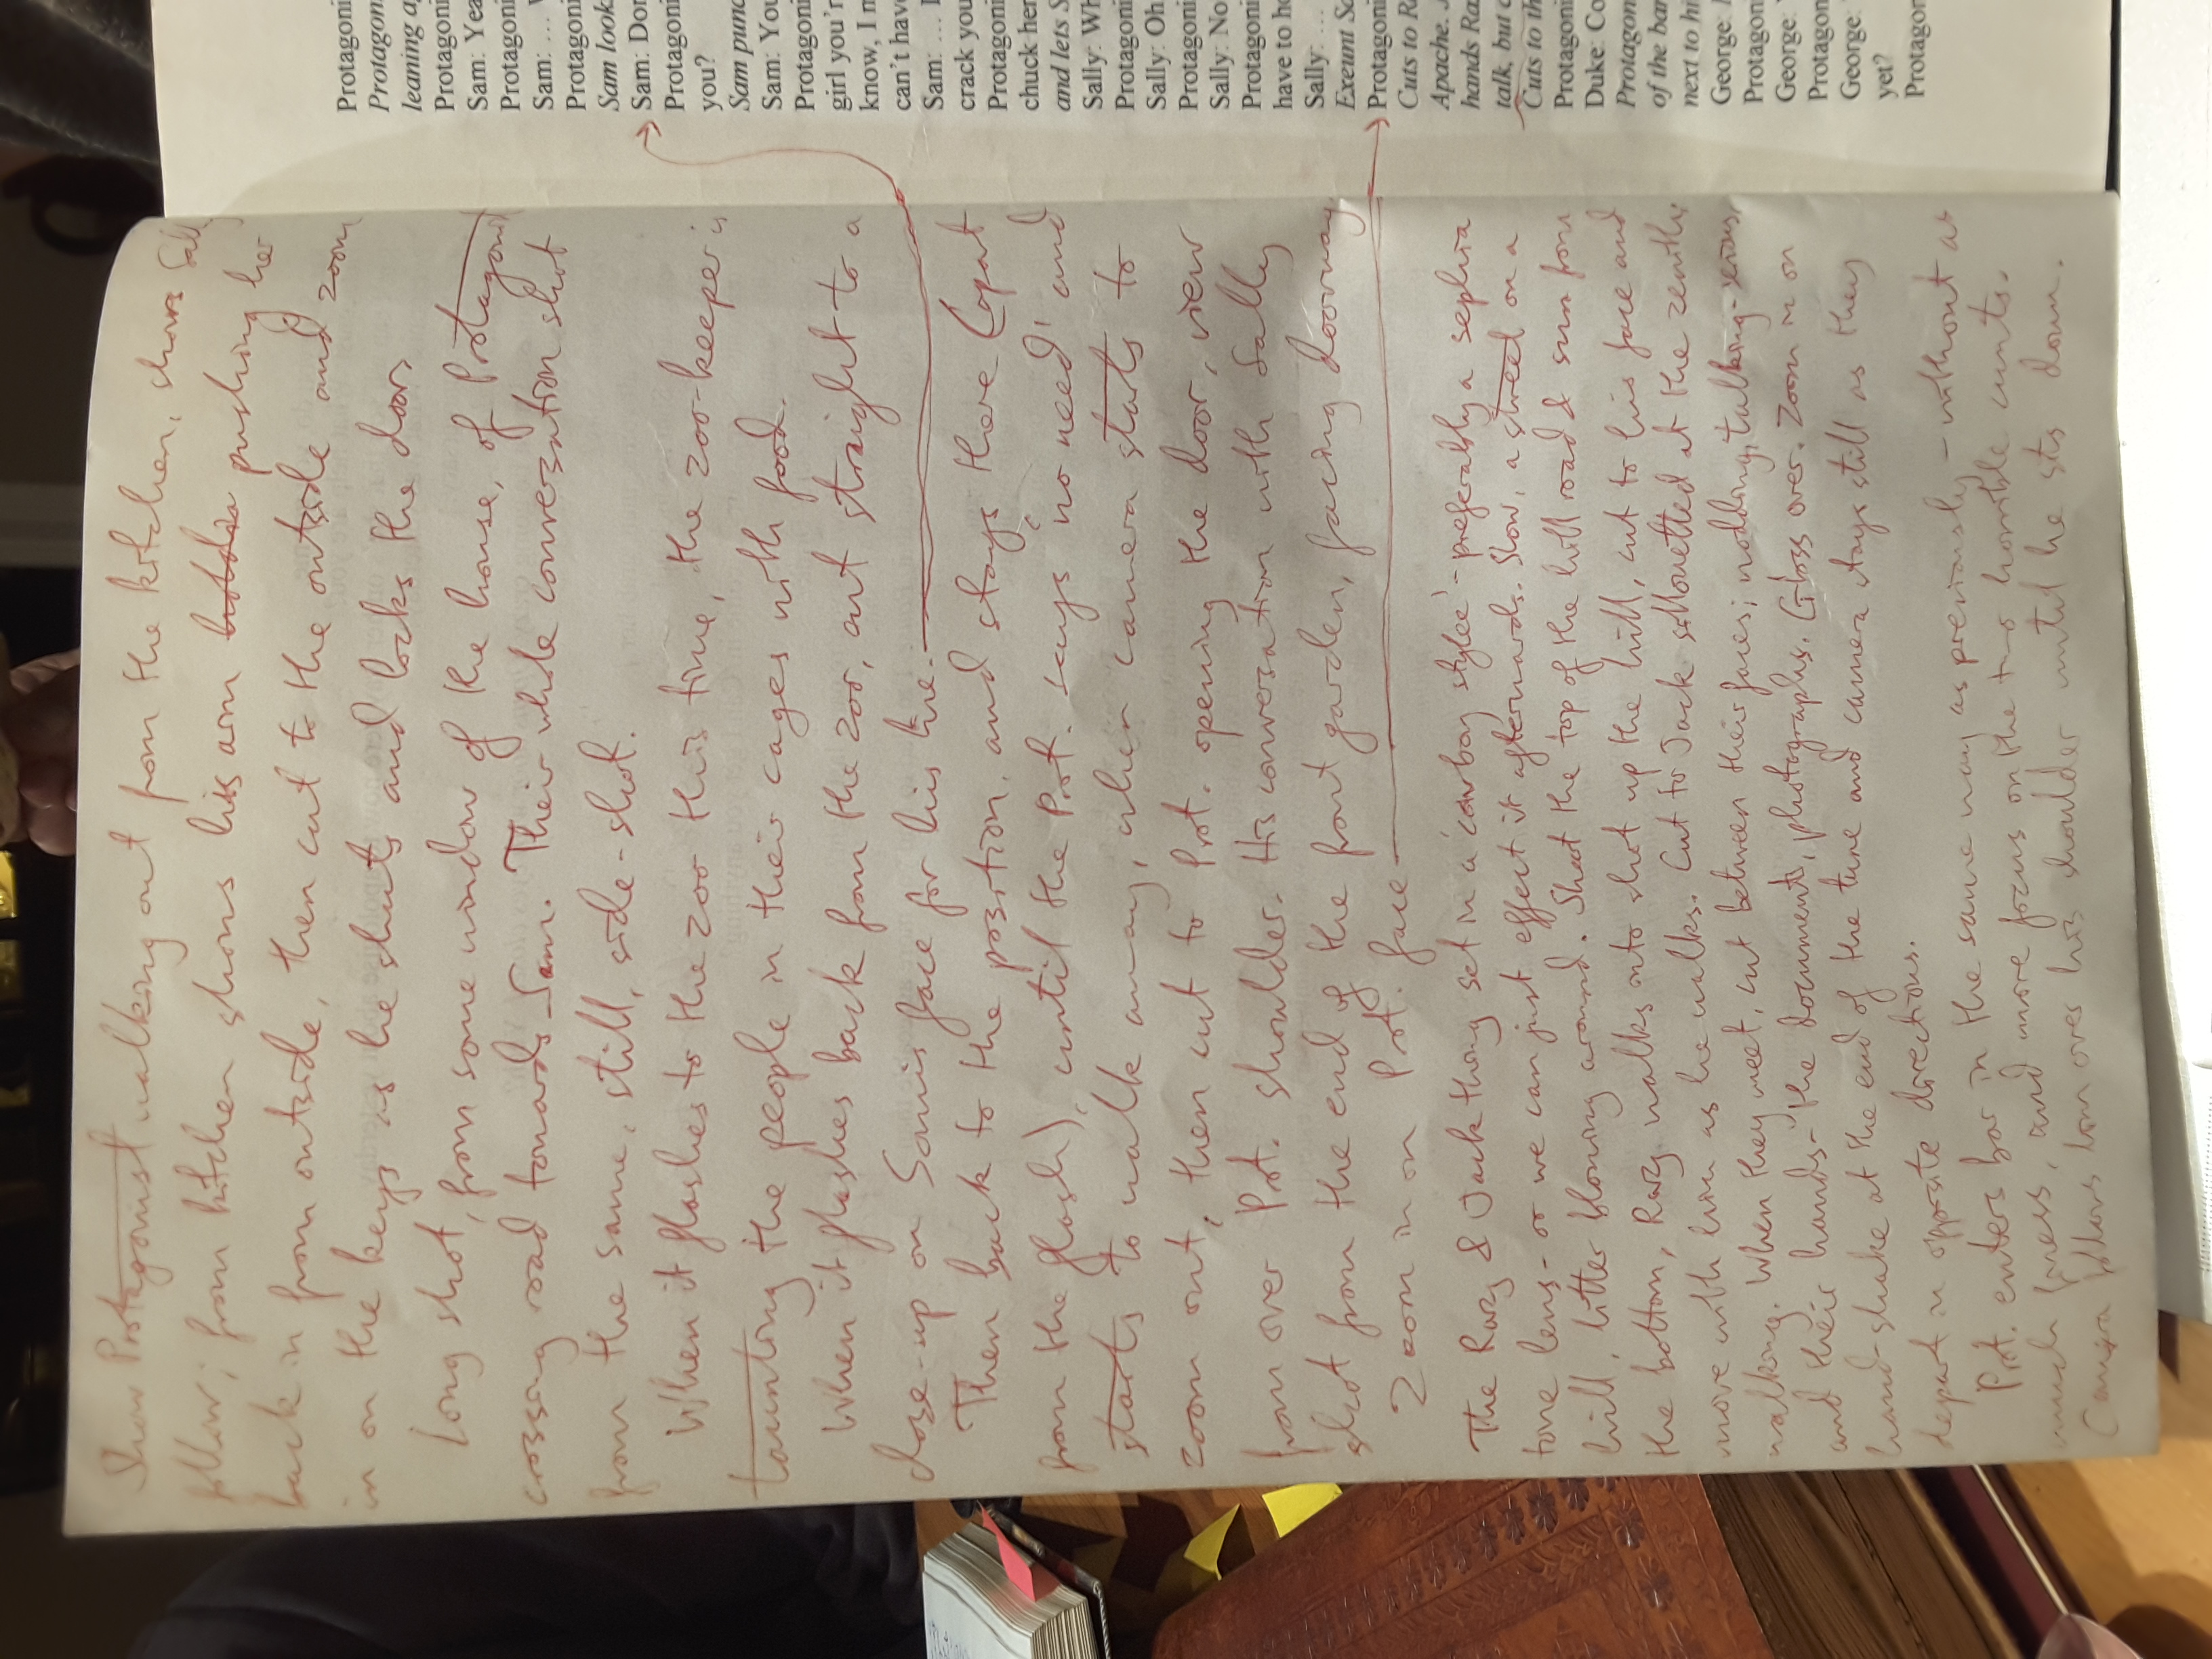 Show Protagonist walking out from the kitchen, shows Sally
follow; from kitchen shows his arm holdin pushing her
back in from outside, then cut to the outside and zoom
in on the keys as he shuts and locks the door.
Long shot, from some window of the house, of Protagonist
crossing road towards Sam. Their whole conversation shot
from the same, still, side-shot.
When it flashes to the zoo this time, the zoo-keeper is
taunting the people in their cages with food.
When it flashes back from the zoo, cut straight to a
close-up on Sam's face for his line.
Then back to the position, and stays there (apart
from the flash), until the Prot. says 'no need' and
starts to walk away, when camera starts to
zoom out, then cut to Prot. opening the door, view
from over Prot. shoulder. His conversation with Sally
shot from the end of the front garden, facing doorway.
Zoom in on Prot. face
The Razz & Jack thing set in a 'cowboy stylee' - preferably a sephia
tone lens - or we can just effect it afterwards. Slow, a street on a
hill, litter blowing around. Shoot the top of the hill road & sun from
the bottom, Razz walks into shot up the hill, cut to his face and
move with him as he walks. Cut to Jack sillouetted at the zenith,
walking. When they meet, cut between their faces; nodding, talking - serious,
and their hands - the documents, photographs. Gloss over. Zoom in on
hand-shake at the end of the tune and camera stays still as they
depart in opposite directions.
Prot. enters bar in the same way as previously - without as
much finess, and more focus on the two horrible cunts.
Camera follows him over his shoulder until he sits down.
Protagoni
Protagon
leaning a
Protagoni
Sam: Yea
Protagoni
Sam: ...
Protagoni
Sam look
Sam: Don
Protagoni
you?
Sam punc
Sam: You
Protagoni
girl you'r
know, I m
can't have
Sam: ... I
crack you
Protagoni
chuck her
and lets S
Sally: Wh
Protagoni
Sally: Oh
Protagoni
Sally: No
Protagoni
have to ho
Sally: ...
Exeunt Sa
Protagoni
Cuts to R
Apache. J
hands Ra
talk, but c
Cuts to th
Protagoni
Duke: Co
Protagon
of the bar
next to hi
George:
Protagon
George:
Protagon
George:
yet?
Protagon